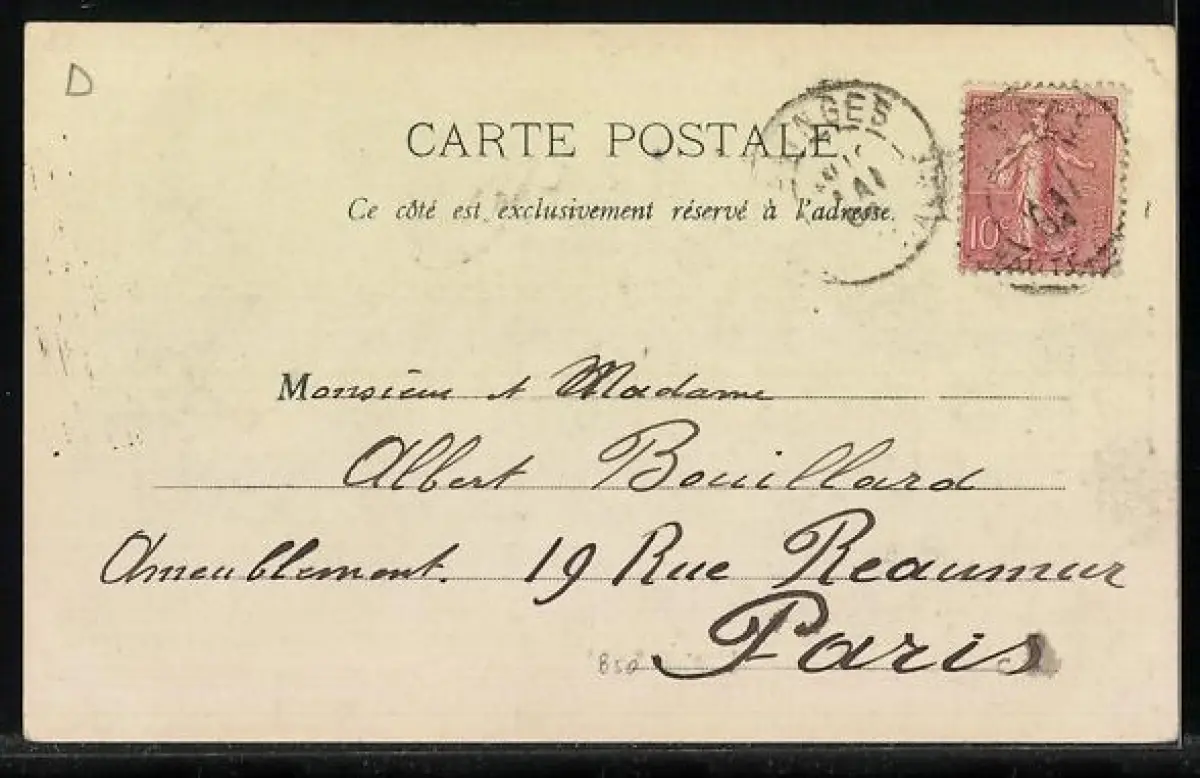 D
CARTE POSTALE
Ce côté est exclusivement réservé à l'adresse.
10c
Monsieur et Madame
Albert Bouillard
Ameublement. 19 Rue Reaumur
Paris